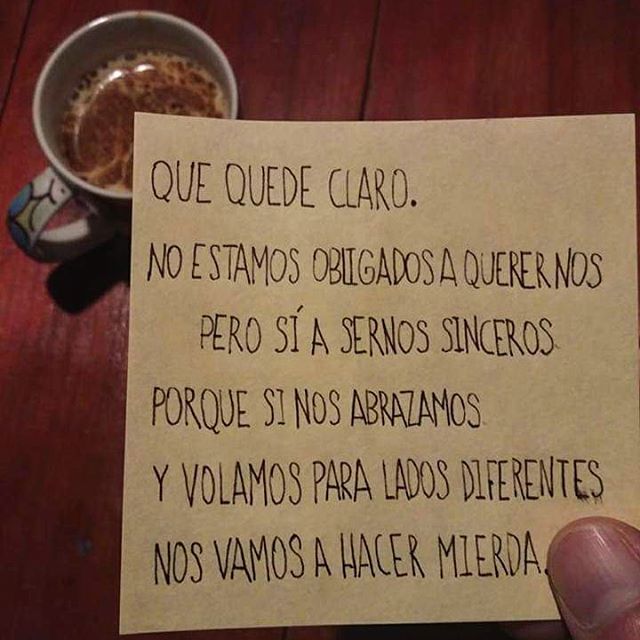 QUE QUEDE CLARO.
NO ESTAMOS OBLIGADOS A QUERERNOS
PERO SÍ A SERNOS SINCEROS
PORQUE SI NOS ABRAZAMOS
Y VOLAMOS PARA LADOS DIFERENTES
NOS VAMOS A HACER MIERDA.